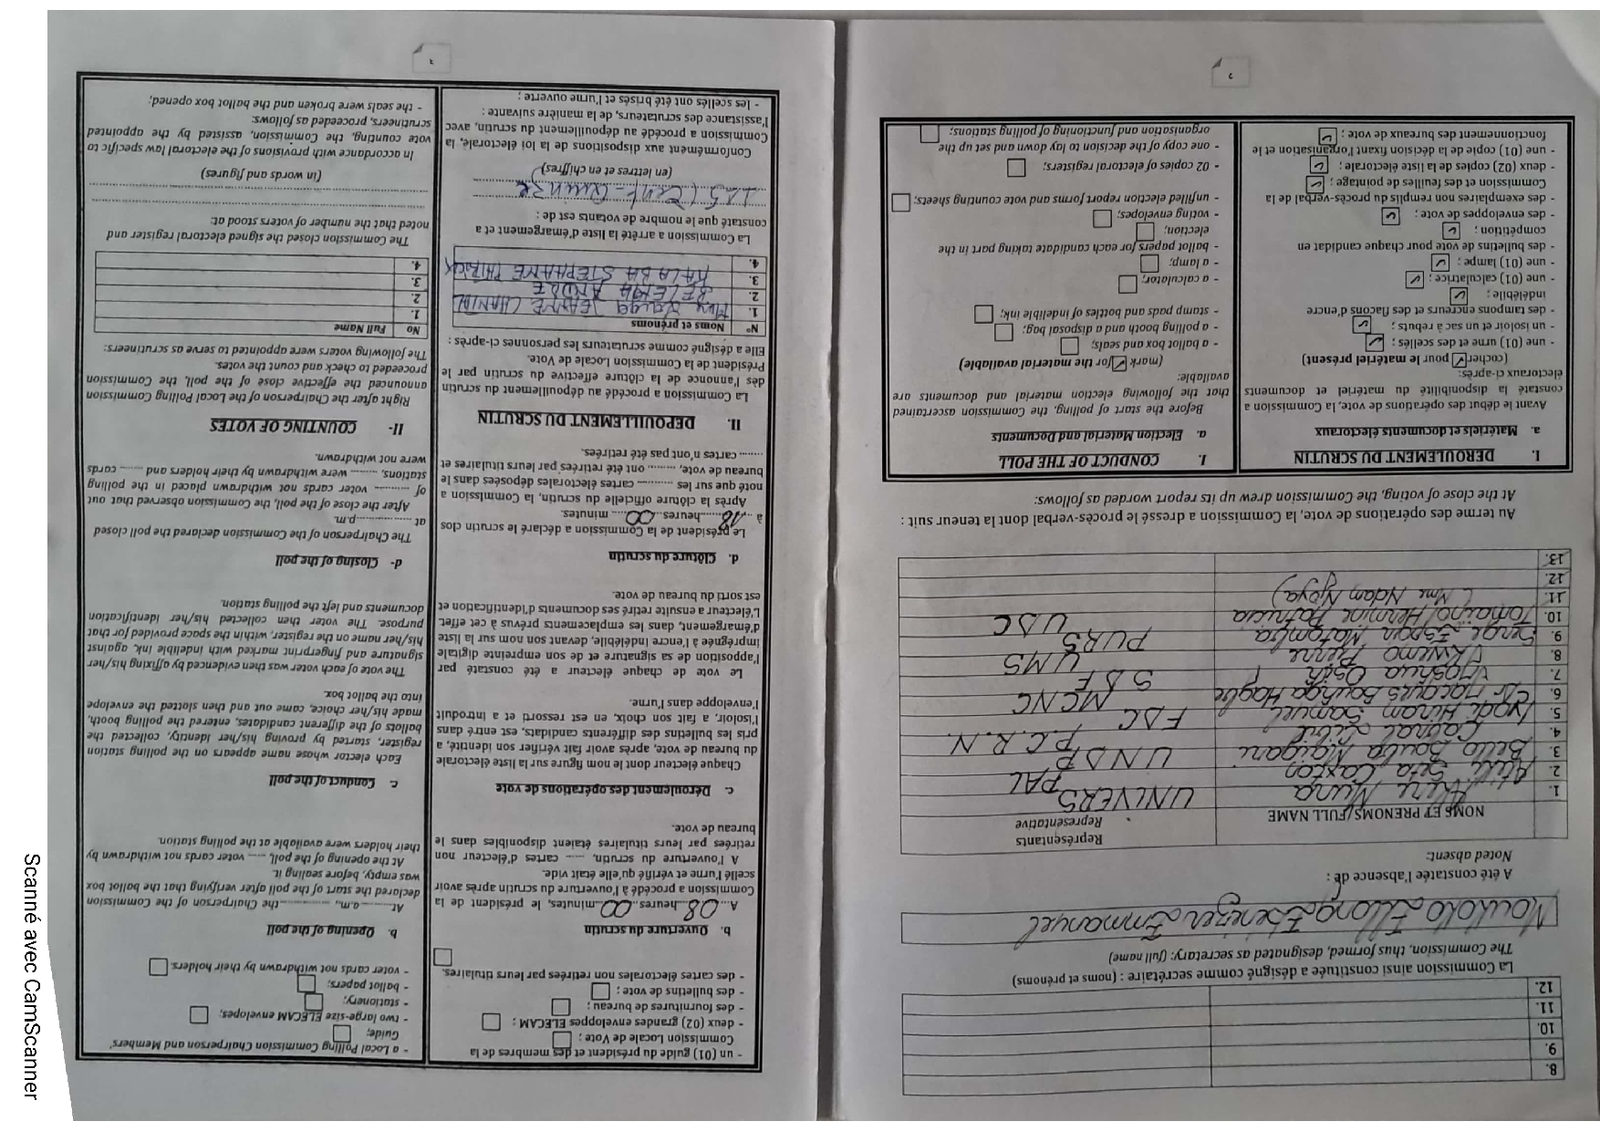 8.
9.
10.
11.
12.
La Commission ainsi constituée a désigné comme secrétaire : (noms et prénoms)
The Commission, thus formed, designated as secretary: (full name)
Moukoko Ellong Ebenizer Emmanuel
A été constatée l'absence de :
Noted absent:
NOMS ET PRENOMS/FULL NAME
Représentants
Representative
1. Akere Muna UNIVERS
2. Ateki Seta Caxton PAL
3. Bello Bouba Maigari UNDP
4. Cabral Libii P.C.R.N.
5. Iyodi Hiram Samuel FDC
6. Jacques Bouhga Hagbe MCNC
7. Joshua Osih SDF
8. Kwemo Pierre UMS
9. Serge Espoir Matomba PURS
10 Tomaïno Hermine Patricia USC
11. (Mme Ndam Njoya)
12.
13.
Au terme des opérations de vote, la Commission a dressé le procès-verbal dont la teneur suit :
At the close of voting, the Commission drew up its report worded as follows:
I. DEROULEMENT DU SCRUTIN
a. Matériels et documents électoraux
Avant le début des opérations de vote, la Commission a
constaté la disponibilité du matériel et documents
électoraux ci-après:
(cocher ✓ pour le matériel présent)
- une (01) urne et des scellés ;
- un isoloir et un sac à rebuts ;
- des tampons encreurs et des flacons d'encre
indélébile ;
- une (01) calculatrice ;
- une (01) lampe ;
- des bulletins de vote pour chaque candidat en
compétition ;
- des enveloppes de vote ;
- des exemplaires non remplis du procès-verbal de la
Commission et des feuilles de pointage ;
- deux (02) copies de la liste électorale ;
- une (01) copie de la décision fixant l'organisation et le
fonctionnement des bureaux de vote ;
I. CONDUCT OF THE POLL
a. Election Material and Documents
Before the start of polling, the Commission ascertained
that the following election material and documents are
available:
(mark ✓ for the material available)
- a ballot box and seals;
- a polling booth and a disposal bag;
- stamp pads and bottles of indelible ink;
- a calculator;
- a lamp;
- ballot papers for each candidate taking part in the
election;
- voting envelopes;
- unfilled election report forms and vote counting sheets;
- 02 copies of electoral registers;
- one copy of the decision to lay down and set up the
organisation and functioning of polling stations;
2
- un (01) guide du président et des membres de la
Commission Locale de Vote ;
- deux (02) grandes enveloppes ELECAM ;
- des fournitures de bureau ;
- des bulletins de vote ;
- des cartes électorales non retirées par leurs titulaires.
b. Ouverture du scrutin
A...08...heures...00...minutes, le président de la
Commission a procédé à l'ouverture du scrutin après avoir
scellé l'urne et vérifié qu'elle était vide.
A l'ouverture du scrutin, ...... cartes d'électeur non
retirées par leurs titulaires étaient disponibles dans le
bureau de vote.
c. Déroulement des opérations de vote
Chaque électeur dont le nom figure sur la liste électorale
du bureau de vote, après avoir fait vérifier son identité, a
pris les bulletins des différents candidats, est entré dans
l'isoloir, a fait son choix, en est ressorti et a introduit
l'enveloppe dans l'urne.
Le vote de chaque électeur a été constaté par
l'apposition de sa signature et de son empreinte digitale
imprégnée à l'encre indélébile, devant son nom sur la liste
d'émargement, dans les emplacements prévus à cet effet.
L'électeur a ensuite retiré ses documents d'identification et
est sorti du bureau de vote.
d. Clôture du scrutin
Le président de la Commission a déclaré le scrutin clos
à ...18...heures...00...minutes.
Après la clôture officielle du scrutin, la Commission a
noté que sur les .......... cartes électorales déposées dans le
bureau de vote, ........ ont été retirées par leurs titulaires et
........ cartes n'ont pas été retirées.
II. DEPOUILLEMENT DU SCRUTIN
La Commission a procédé au dépouillement du scrutin
dès l'annonce de la clôture effective du scrutin par le
Président de la Commission Locale de Vote.
Elle a désigné comme scrutateurs les personnes ci-après :
N° Noms et prénoms
1. JEANNE CHANTAL
2. BELEMA ANDRE
3. MALABA STEPHANE PATRICK
4.
La Commission a arrêté la liste d'émargement et a
constaté que le nombre de votants est de :
115 (Cent-Quinze
(en lettres et en chiffres)
Conformément aux dispositions de la loi électorale, la
Commission a procédé au dépouillement du scrutin, avec
l'assistance des scrutateurs, de la manière suivante :
- les scellés ont été brisés et l'urne ouverte ;
- a Local Polling Commission Chairperson and Members'
Guide;
- two large-size ELECAM envelopes;
- stationery;
- ballot papers;
- voter cards not withdrawn by their holders.
b. Opening of the poll
At..........a.m., ..............the Chairperson of the Commission
declared the start of the poll after verifying that the ballot box
was empty, before sealing it.
At the opening of the poll, ...... voter cards not withdrawn by
their holders were available at the polling station.
c. Conduct of the poll
Each elector whose name appears on the polling station
register, started by proving his/her identity, collected the
ballots of the different candidates, entered the polling booth,
made his/her choice, came out and then slotted the envelope
into the ballot box.
The vote of each voter was then evidenced by affixing his/her
signature and fingerprint marked with indelible ink, against
his/her name on the register, within the space provided for that
purpose. The voter then collected his/her identification
documents and left the polling station.
d- Closing of the poll
The Chairperson of the Commission declared the poll closed
at ..................p.m.
After the close of the poll, the Commission observed that out
of .......... voter cards not withdrawn placed in the polling
stations, ........ were withdrawn by their holders and ...... cards
were not withdrawn.
II- COUNTING OF VOTES
Right after the Chairperson of the Local Polling Commission
announced the effective close of the poll, the Commission
proceeded to check and count the votes.
The following voters were appointed to serve as scrutineers:
No Full Name
1.
2.
3.
4.
The Commission closed the signed electoral register and
noted that the number of voters stood at:
(in words and figures)
In accordance with provisions of the electoral law specific to
vote counting, the Commission, assisted by the appointed
scrutineers, proceeded as follows:
- the seals were broken and the ballot box opened;
3
Scanné avec CamScanner